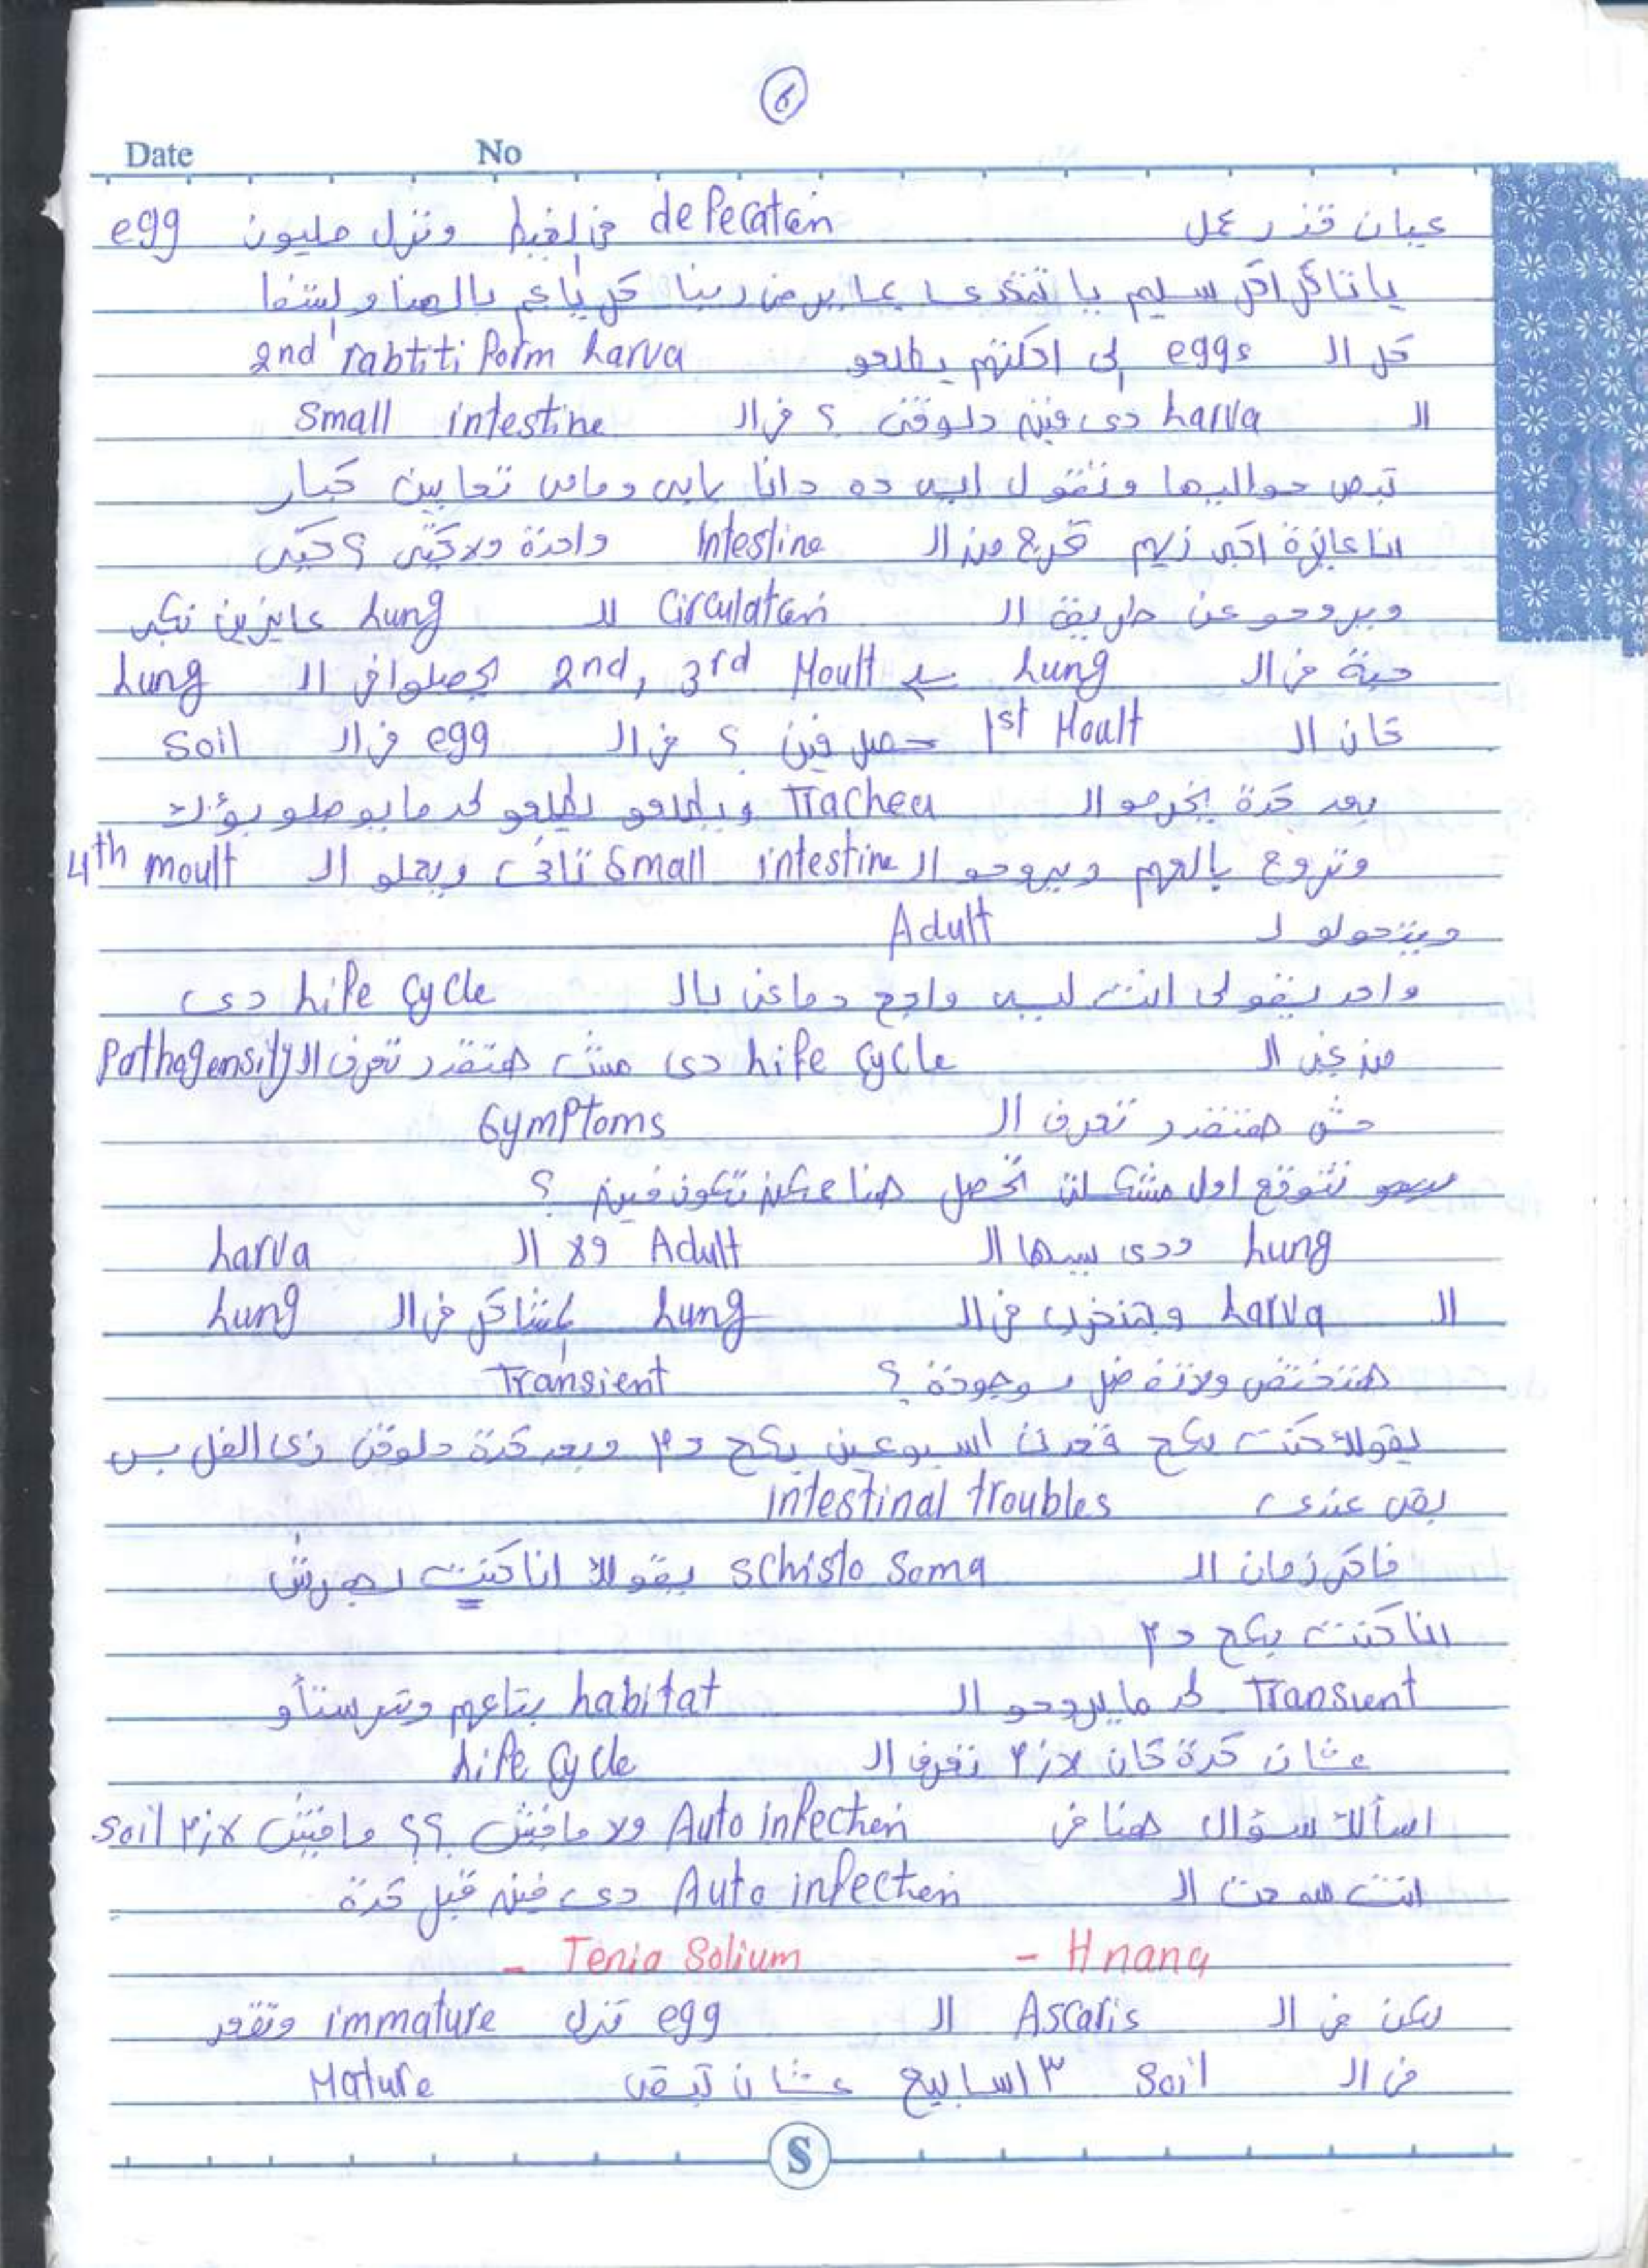 6
Date No
عيان قذر عمل defecation في الغيط ونزل مليون egg
يا تاكل اكل سليم يا تتغدى على برض ربنا كل يا عم بالهنا والشفا
كل ال eggs الى اكلتهم يطلعو 2nd rabtiti form Larva
ال Larva دى فين دلوقتى ؟ فى ال Small intestine
تبص حواليها وتقول ايه ده دانا بابى ومامى تعابين كبار
انا عايزة اكبر زيهم تخرج من ال Intestine واحدة ولا كتير ؟ كتير
وبيروحو عن طريق ال Circulation لل Lung عايزين نكبر
حبة فى ال Lung 2nd, 3rd Moult يحصلوا فى ال Lung
كان ال 1st Moult حصل فين ؟ فى ال egg فى ال Soil
بعد كدة يخرجو ال Trachea ويطلعو يطلعو لحد ما يوصلو بؤك
وتروح بالعهم ويروحو ال Small intestine تانى ويعملو ال 4th moult
ويتحولو ل Adult
واحد يقولى انت ليه واجع دماغى بال Life Cycle دى
من غير ال Life Cycle دى مش هتقدر تعرف ال Pathogensity
مش هتقدر تعرف ال Symptoms
نتوقع اول مشكلة تحصل هنا ممكن تكون فين ؟
Lung ودى سببها ال Adult ولا ال Larva
ال Larva وهتخرب فى ال Lung مشاكل فى ال Lung
هتختفى ولا تفضل موجودة ؟ Transient
يقولك كنت بكح قعدت اسبوعين بكح دم وبعد كدة دلوقتى زى الفل بس
بقى عندى intestinal troubles
فاكر زمان ال Schisto Soma يقولك انا كنت بهرش
انا كنت بكح دم
Transient لحد ما يروحو ال habitat بتاعهم ويترستأو
عشان كدة كان لازم تعرف ال Life Cycle
اسألك سؤال هنا فى Auto infection ولا مافيش ؟؟ مافيش لازم Soil
انت سمعت ال Auto infection دى فين قبل كدة
- H nana - Tenia Solium
لكن فى ال Ascaris ال egg تنزل immature وتقعد
فى ال Soil ٣ اسابيع عشان تبقى Mature
S